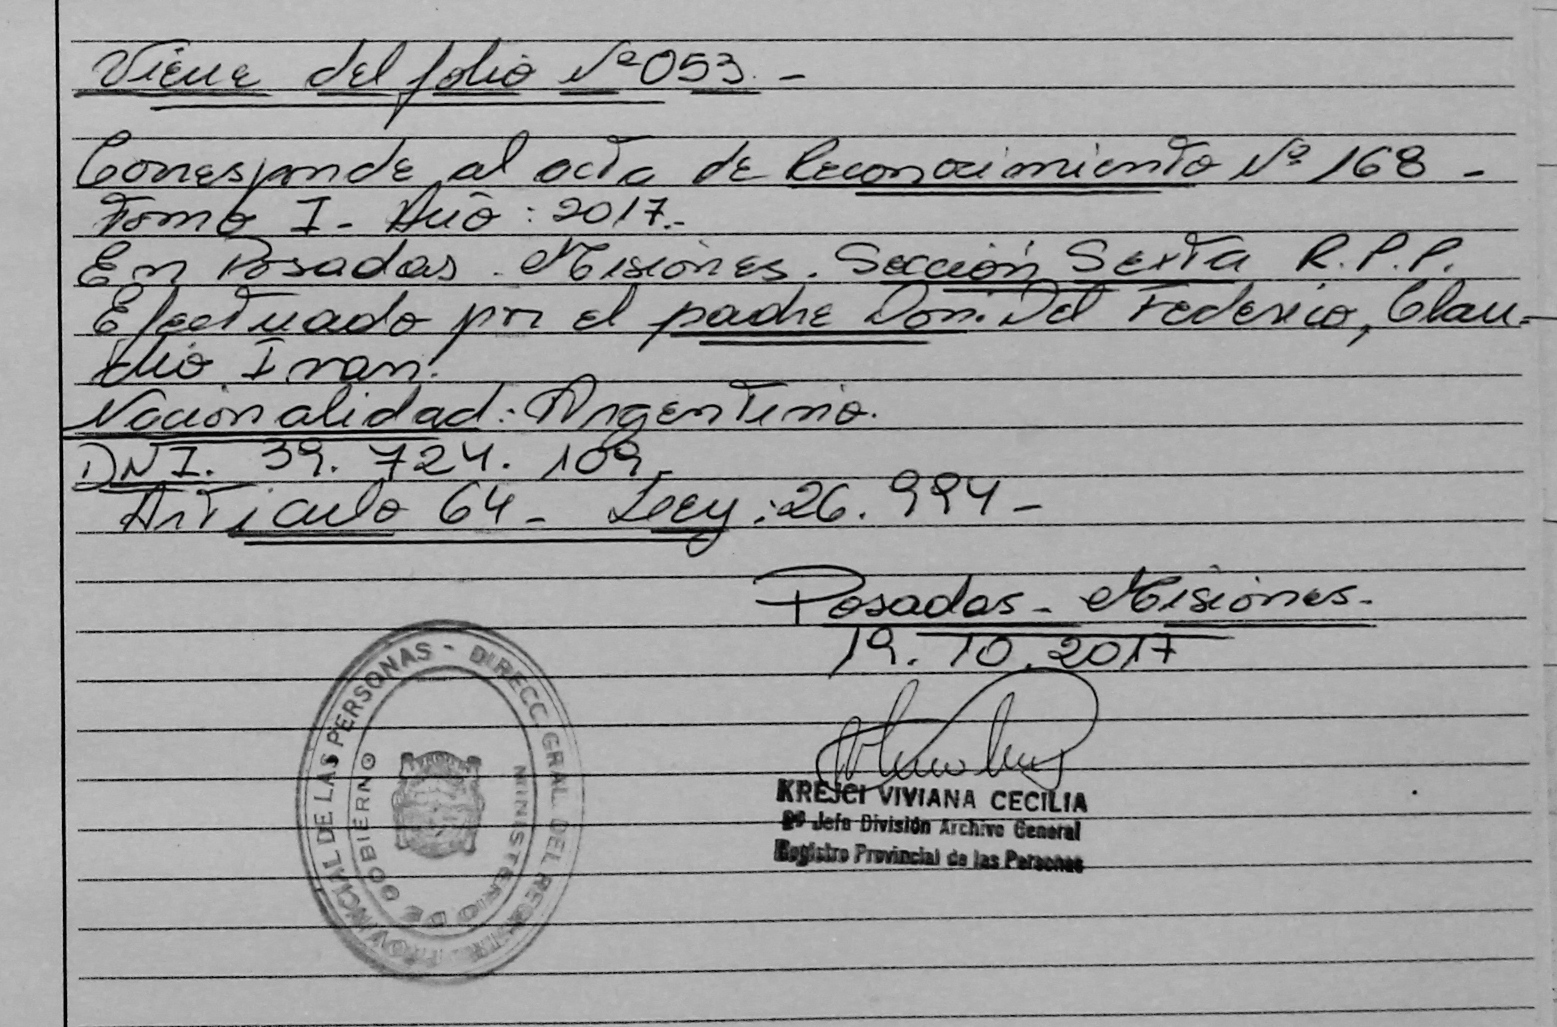 Viene del folio Nº 053. -
Corresponde al acta de Reconocimiento Nº 168 -
Tomo I - Año : 2017.-
En Posadas . Misiones . Sección Sexta R.P.P.
Efectuado por el padre Don: Del Federico, Clau-
dio Ivan.
Nacionalidad : Argentino.
DNI. 39. 724. 109.
Articulo 64 - Ley : 26. 994 -
Posadas - Misiones -
19. 10. 2017
KREJCI VIVIANA CECILIA
2º Jefa División Archivo General
Registro Provincial de las Personas
DIRECC. GRAL. DEL REGISTRO PROVINCIAL DE LAS PERSONAS -
MINISTERIO DE GOBIERNO